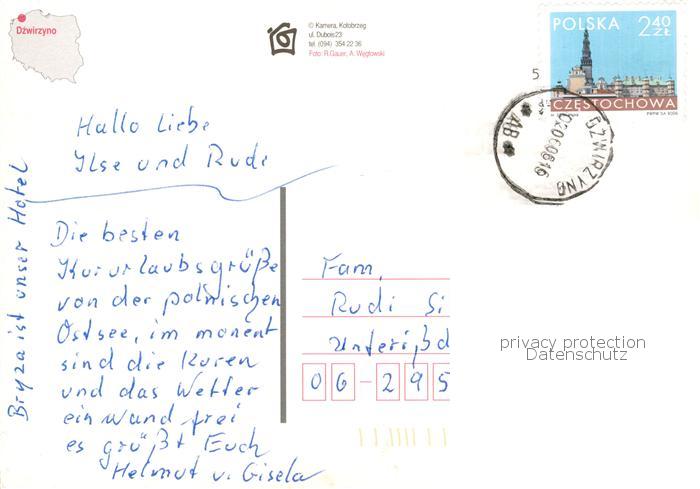 Dźwirzyno
© Kamera, Kołobrzeg
ul. Dubois 23
tel. (094) 354 22 36
Foto: R.Gauer, A. Węgłowski
POLSKA 2,40 ZŁ
CZĘSTOCHOWA
PWPW SA 2005
5
DZWIRZYNO
AB
Hallo Liebe
Ilse und Rudi
Die besten
Kururlaubsgrüße
von der polnischen
Ostsee, im moment
sind die Kuren
und das Wetter
einwand frei
es grüßt Euch
Helmut u. Gisela
Bryza ist unser Hotel
Fam.
Rudi Si
06-295
privacy protection
Datenschutz